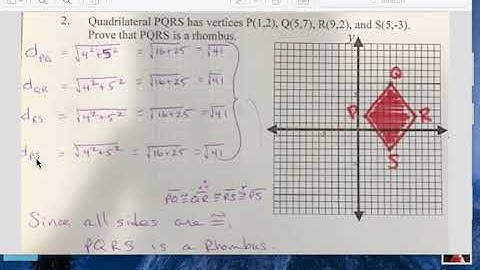 2. Quadrilateral PQRS has vertices P(1,2), Q(5,7), R(9,2), and S(5,-3).
Prove that PQRS is a rhombus.
d_PQ = √4²+5² = √16+25 = √41
d_QR = √4²+5² = √16+25 = √41
d_RS = √4²+5² = √16+25 = √41
d_PS = √4²+5² = √16+25 = √41
Q
P
R
S
∴
PQ ≅ QR ≅ RS ≅ PS
Since all sides are ≅,
PQRS is a Rhombus.